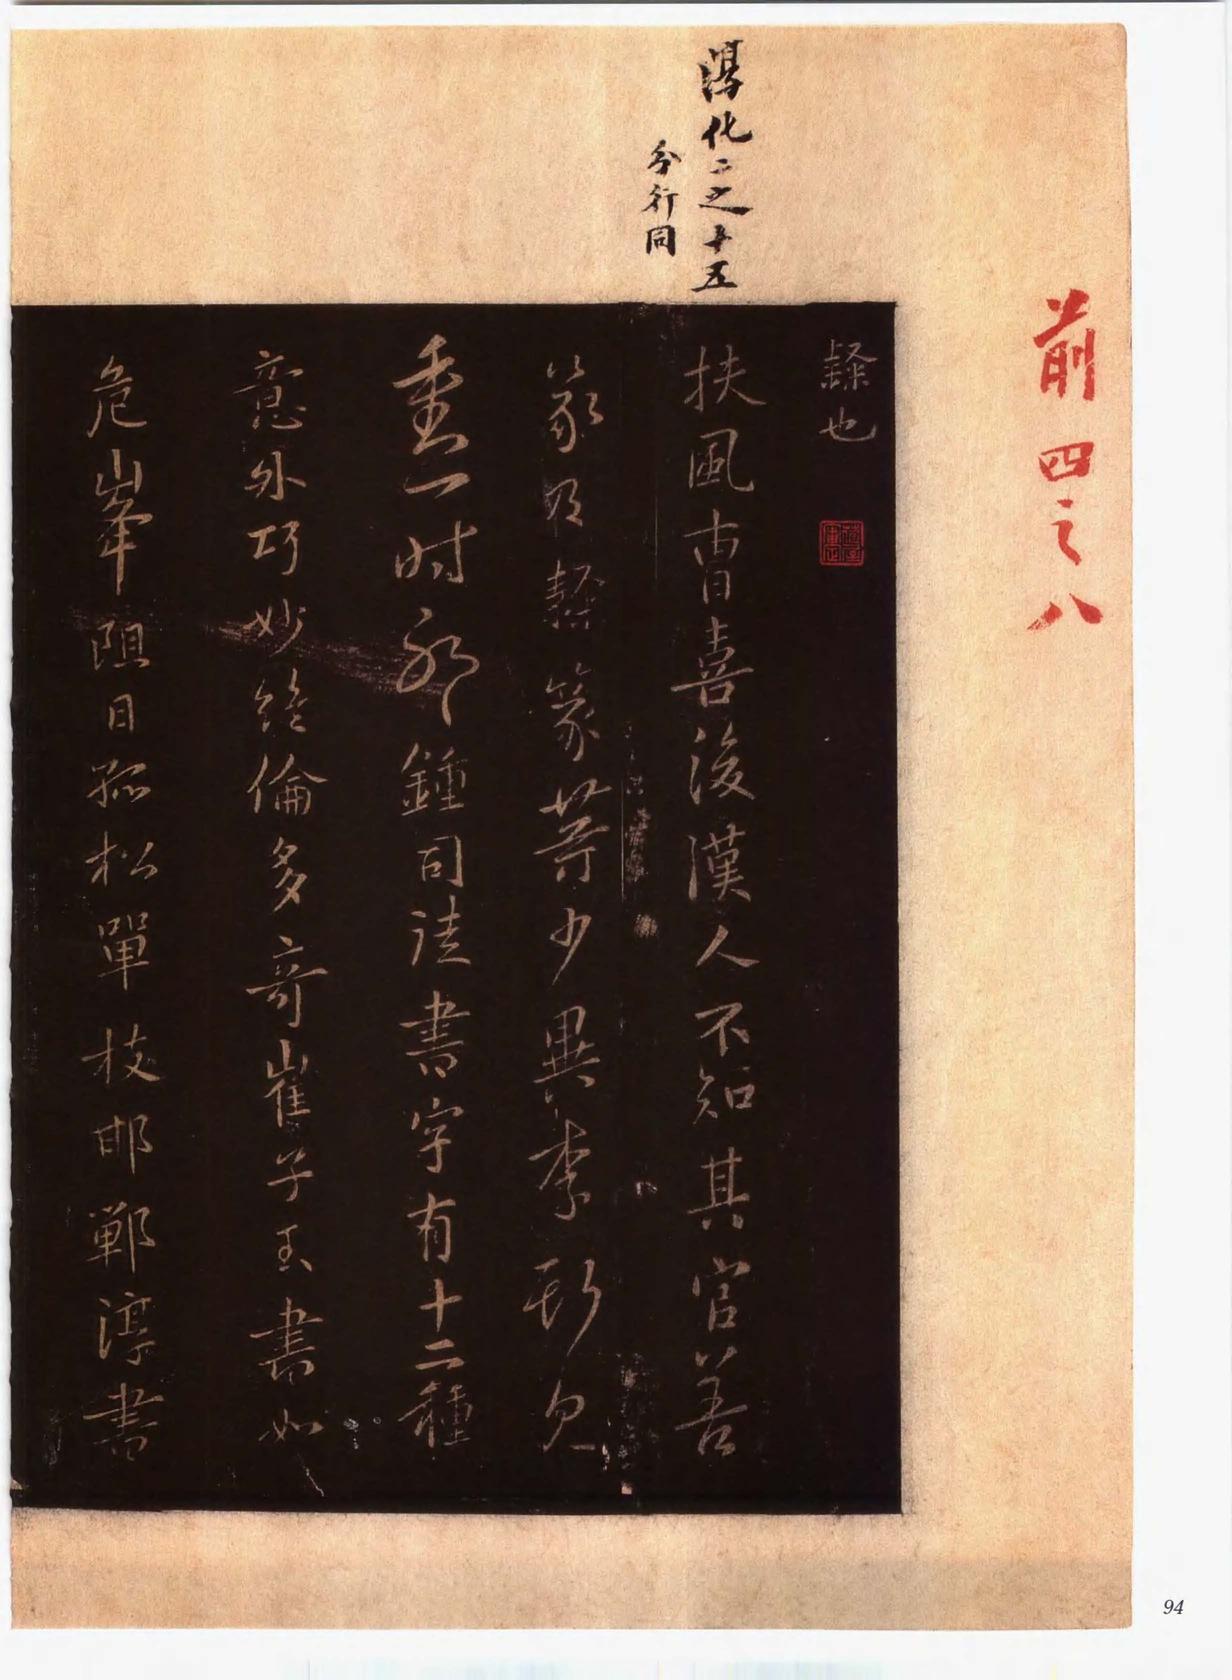 前四之八
淳化二之十五
分行同
隸也
扶風曹喜後漢人不知其官善
篆隸篆等少異李斯見
重一時耶鍾司徒書字有十二種
意外巧妙絕倫多奇崔子玉書如
危峯阻日孤松單枝邯鄲淳書
94